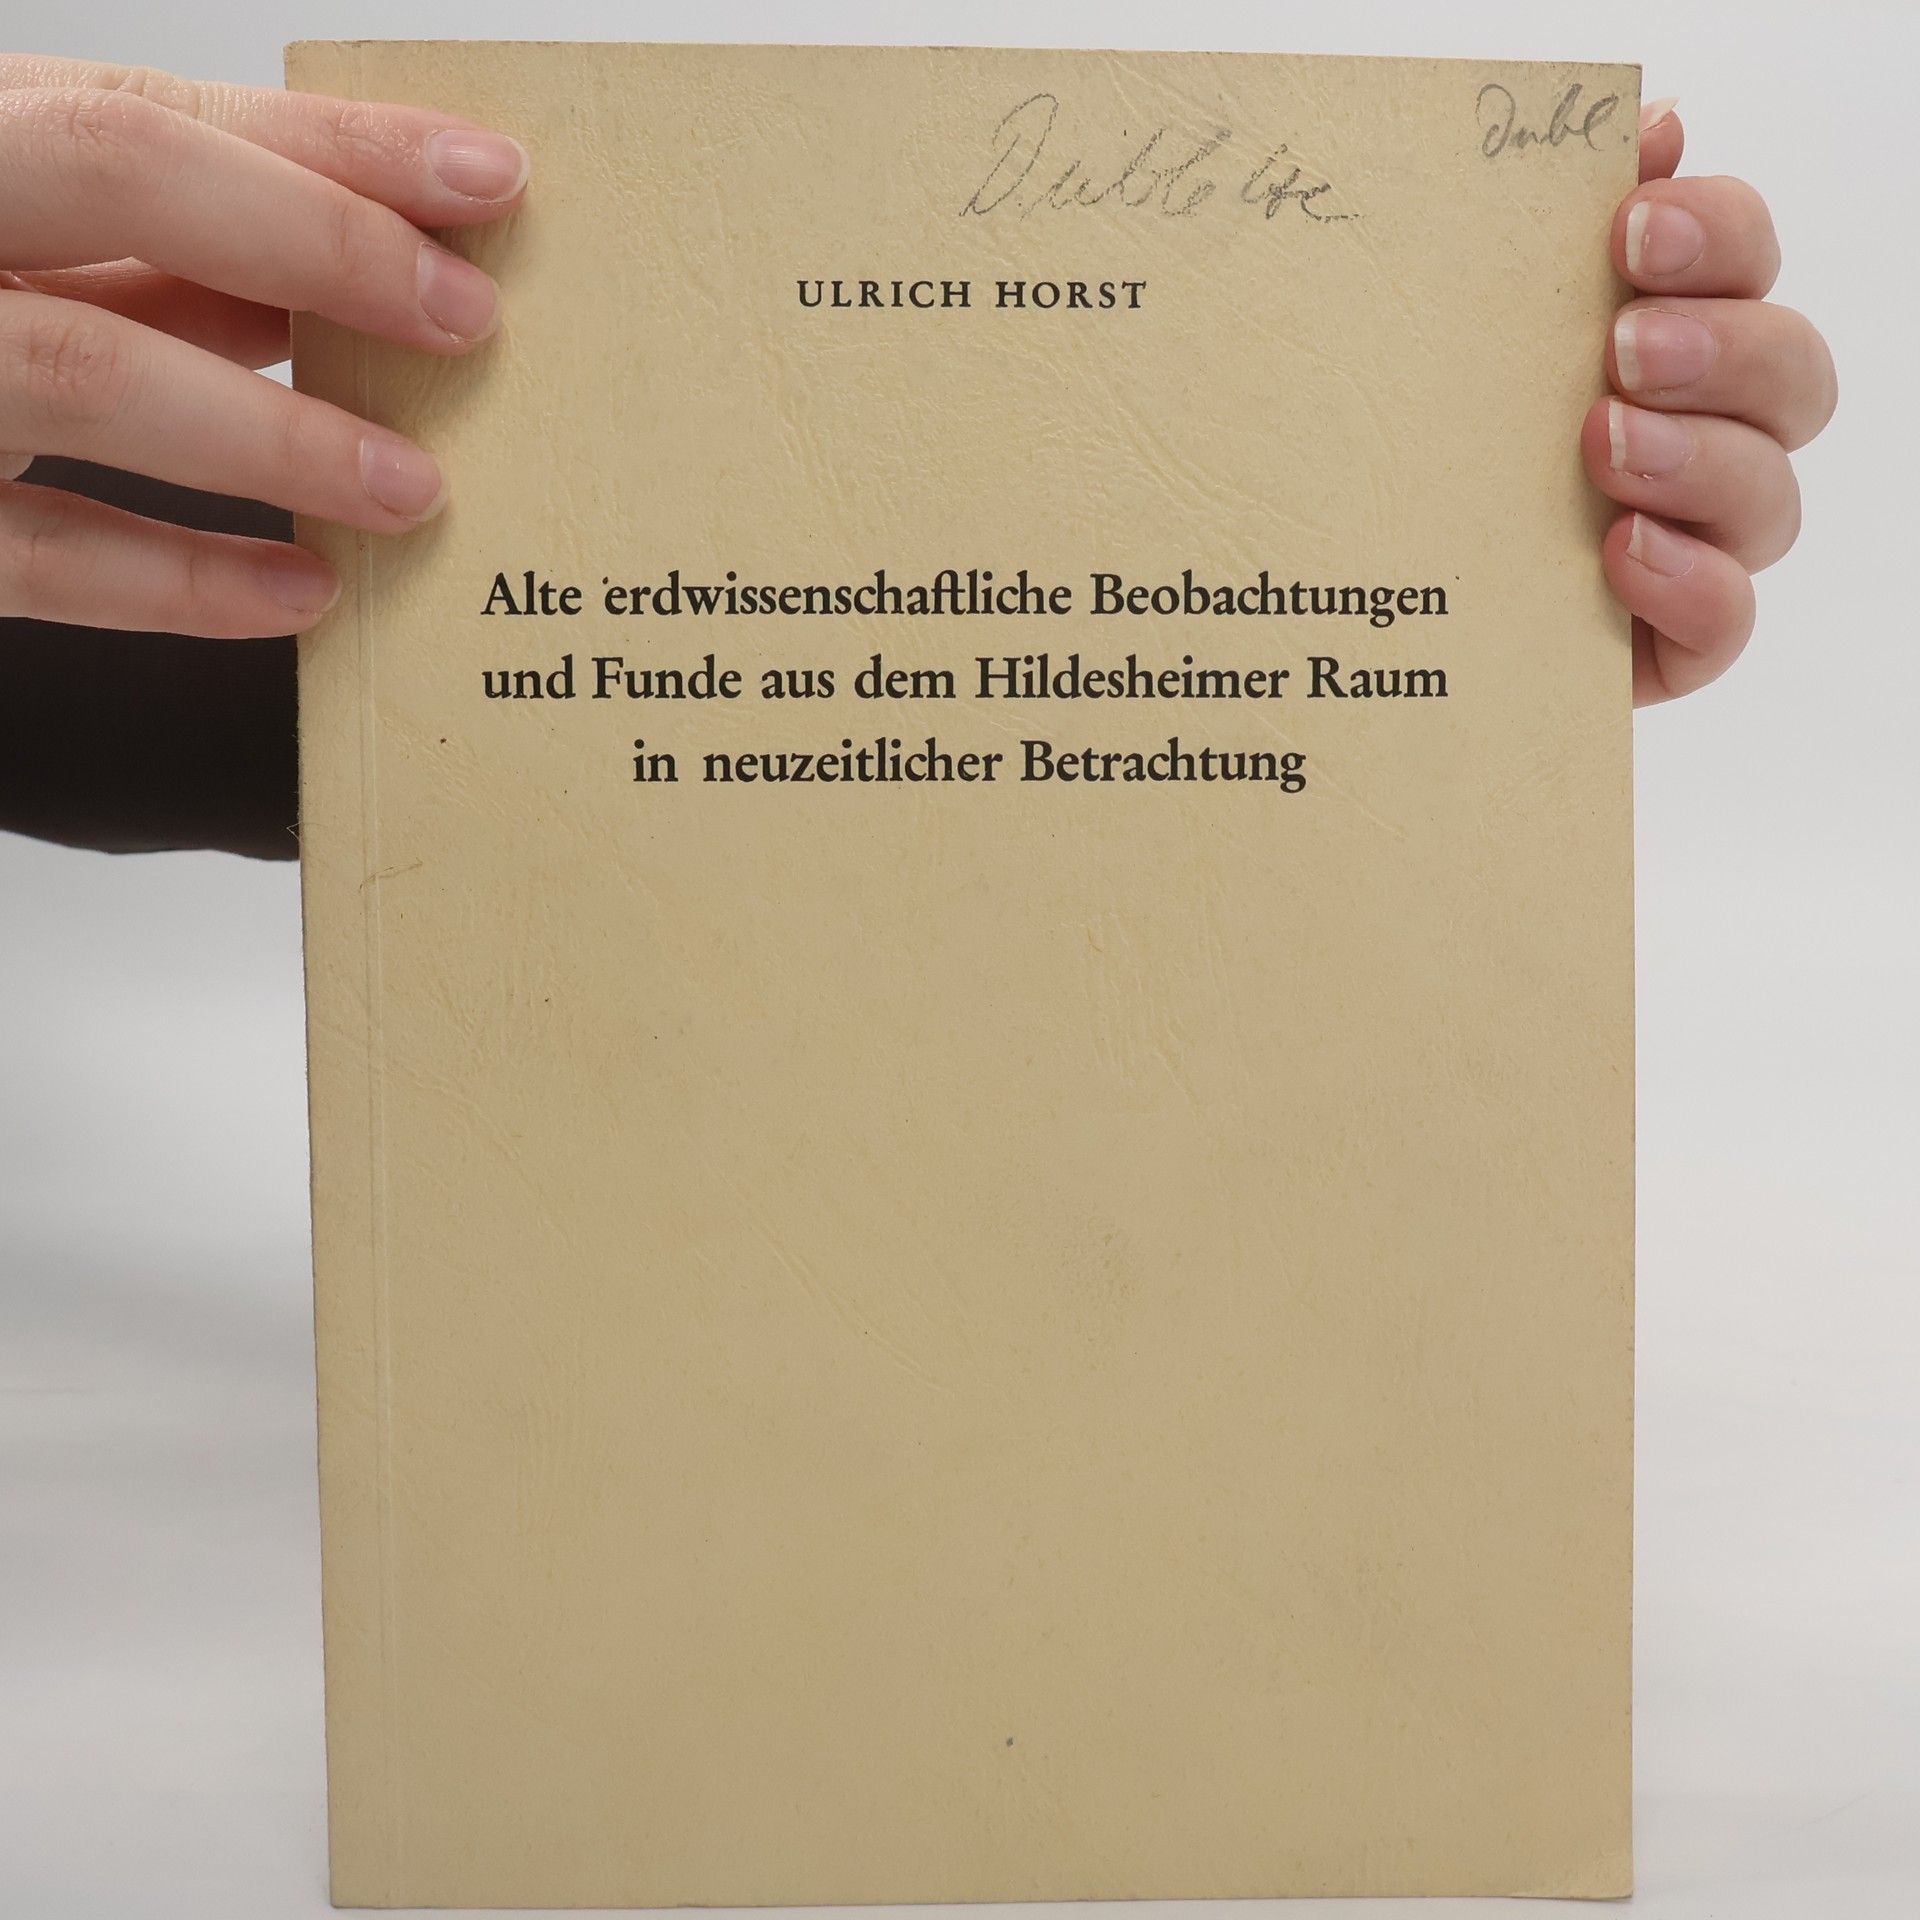 Dublette
Dubl.
ULRICH HORST
Alte erdwissenschaftliche Beobachtungen
und Funde aus dem Hildesheimer Raum
in neuzeitlicher Betrachtung